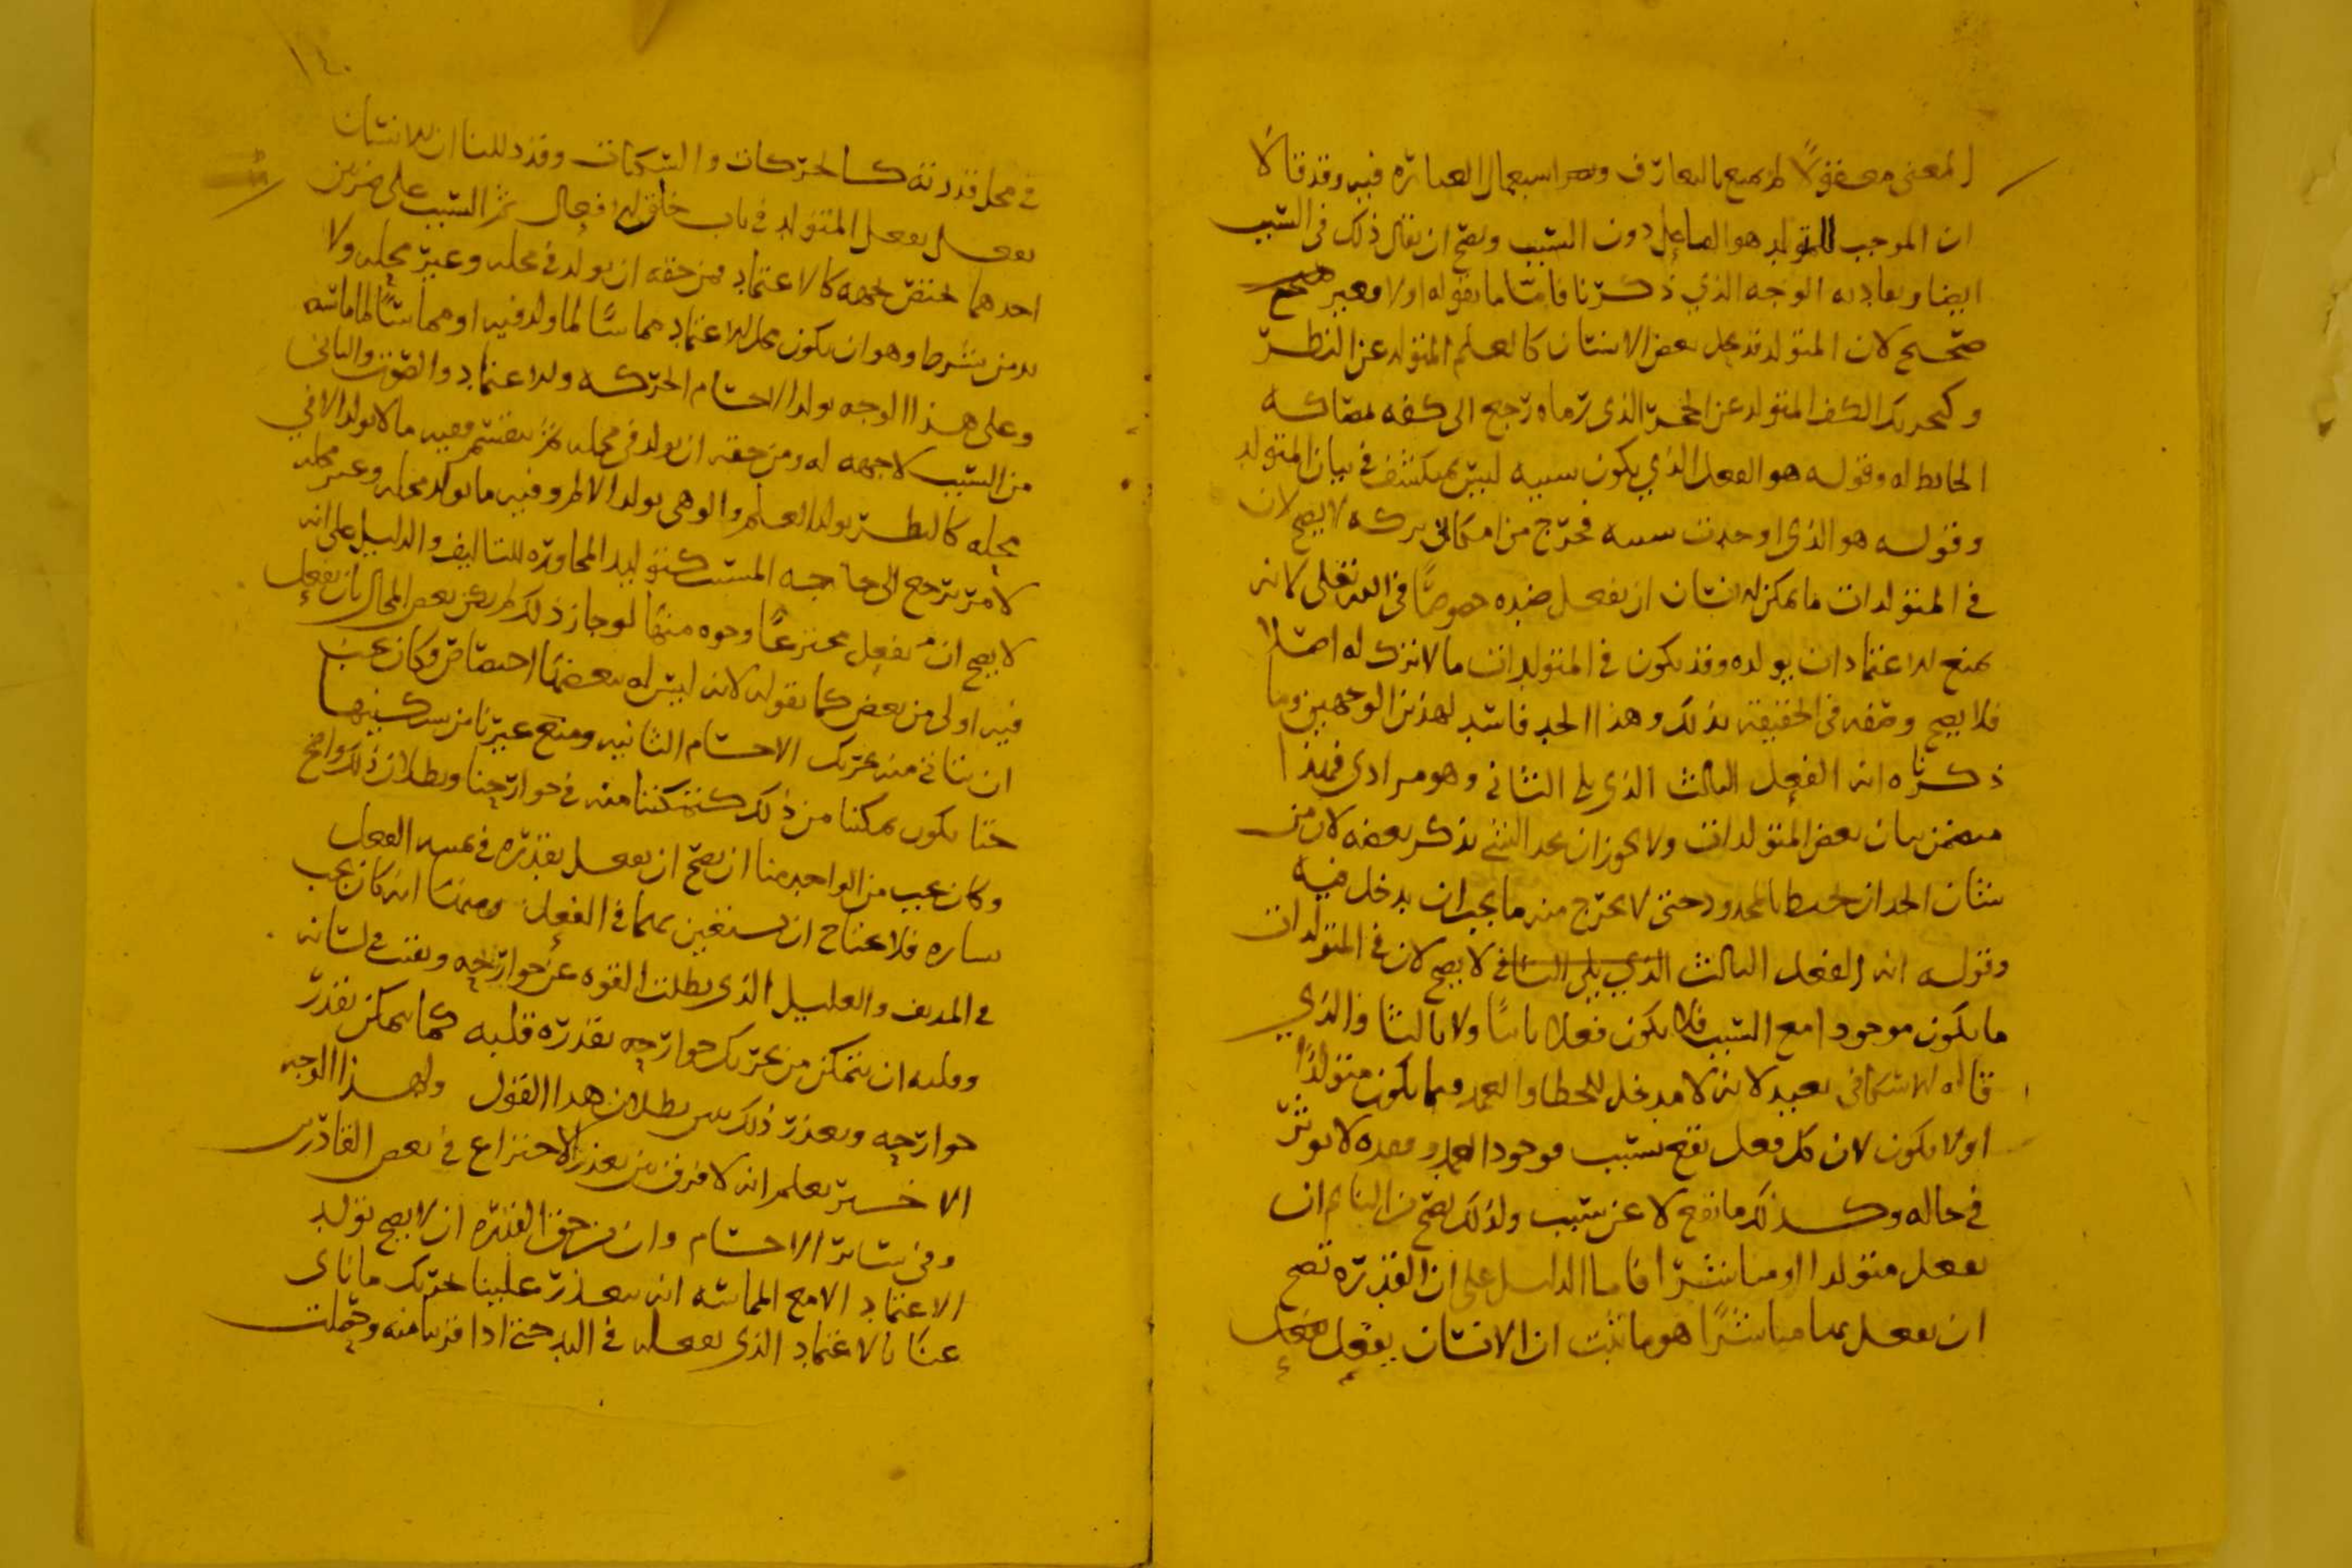 المعنى معقولا لم يمنع بالتعارف وبعد استعمال العبارة فيه وقد قالا
ان الموجب للمتولد هو الفاعل دون السبب ويصح ان يقال ذلك في السبب
ايضا ويعاد به الوجه الذي ذكرنا فاما ما يقوله اولا فغير صحيح
صحيح لان المتولد قد يحل بعض الانسان كالعلم المتولد عن النظر
وكتحريك الكف المتولد عن الحجر الذي رماه رجع الى كفه لمصاكه
الحايط له وقوله هو الفعل الذي يكون سببه ليس بمكشف في بيان المتولد
وقوله هو الذي اوجدت سببه فخرج من امكاني تركه لا يصح لان
في المتولدات ما يمكن الانسان ان يفعل ضده خصوصا في اليد لانه
يمنع الاعتماد ان يولده وقد يكون في المتولدات ما لا ترك له اصلا
فلا يصح وصفه في الحقيقة بذلك وهذا الحد فاسد لهذين الوجهين وما
ذكرناه انه الفعل الثالث الذي يلي الثاني وهو مرادي فهذا
متضمن بيان بعض المتولدات ولا يجوز ان يحد الشئ بذكر بعضه لان من
شان الحد ان يحيط بالمحدود حتى لا يخرج منه ما يجب ان يدخل فيه
وقوله انه الفعل الثالث الذي يلي الثاني لا يصح لان في المتولدات
ما يكون موجودا مع السبب فلا يكون فعلا ثانيا ولا ثالثا والذي
قاله الاسكافي بعيد لانه لا مدخل للخطا والعمد فيما يكون متولدا
او لا يكون لان كل فعل يقع بسبب فوجود العمد وفقده لا يوثر
في حاله وكذلك ما يقع لا عن سبب ولذلك يصح من النايم ان
يفعل متولدا او مباشرا فاما الدليل على ان القدرة تصح
ان يفعل بها مباشرا هو ما ثبت ان الانسان يفعل الفعل
١٤٠
في محل قدرته كالحركات والسكنات وقد دللنا ان الانسان
يفعل المتولد في باب خلق الافعال ثم السبب على ضربين
احدهما يختص بجهة كالاعتماد فمن حقه ان يولد في محله وغير محله ولا
بد من شرط وهو ان يكون محل الاعتماد مماسا لما ولد فيه او مماسا لما ماسه
وعلى هذا الوجه يولد الاجسام الحركة والاعتماد والصوت والثاني
من السبب لا جهة له ومن حقه ان يولد في محله ثم ينقسم ففيه ما لا يولد الا في
محله كالنظر يولد العلم والوهي يولد الالم وفيه ما يولد في محله وغير محله
لامر يرجع الى حاجة المسبب كتوليد المجاورة للتاليف والدليل على انه
لا يصح ان يفعل مخترعا وجوه منها لو جاز ذلك لم يكن بعض المحال بان يفعل
فيه اولى من بعض كما نقوله لانه ليس له ببعضها اختصاص فكان يجب
ان يتاتى منه تحريك الاجسام النائية ومنع غيرنا من تسكينها
حتا يكون تمكننا من ذلك كتمكننا منه في جوارحنا وبطلان ذلك واضح
وكان يجب من الواحد منا ان يصح ان يفعل بقدرة في يمينه الفعل
يساره فلا يحتاج ان يستعين بهما في الفعل ومنها انه كان يجب
في المدنف والعليل الذي بطلت القوة عن جوارحه وبقت في لسانه
وقلبه ان يتمكن من تحريك جوارحه بقدرة قلبه كما يمكن بقدر
جوارحه وتعذر ذلك يبين بطلان هذا القول ولهذا الوجه
الاخير يعلم انه لا فرق بين تعذر الاختراع في بعض القادرين
وفي سائر الاجسام وان من حق القدرة ان لا يصح توليد
الاعتماد الا مع المماسة انه يتعذر علينا تحريك ما ناى
عنا بالاعتماد الذي نفعله في اليد حتى اذا قربنا منه وحصلت